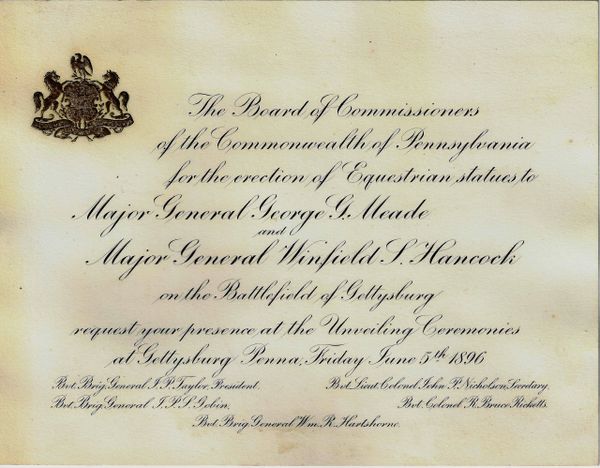 The Board of Commissioners
of the Commonwealth of Pennsylvania
for the erection of Equestrian statues to
Major General George G. Meade
and
Major General Winfield S. Hancock
on the Battlefield of Gettysburg
request your presence at the Unveiling Ceremonies
at Gettysburg Penna, Friday June 5th 1896
Bvt. Brig. General J. P. Taylor, President.
Bvt. Lieut. Colonel John P. Nicholson, Secretary.
Bvt. Brig. General J. P. S. Gobin.
Bvt. Colonel R. Bruce Ricketts.
Bvt. Brig. General Wm. R. Hartshorne.